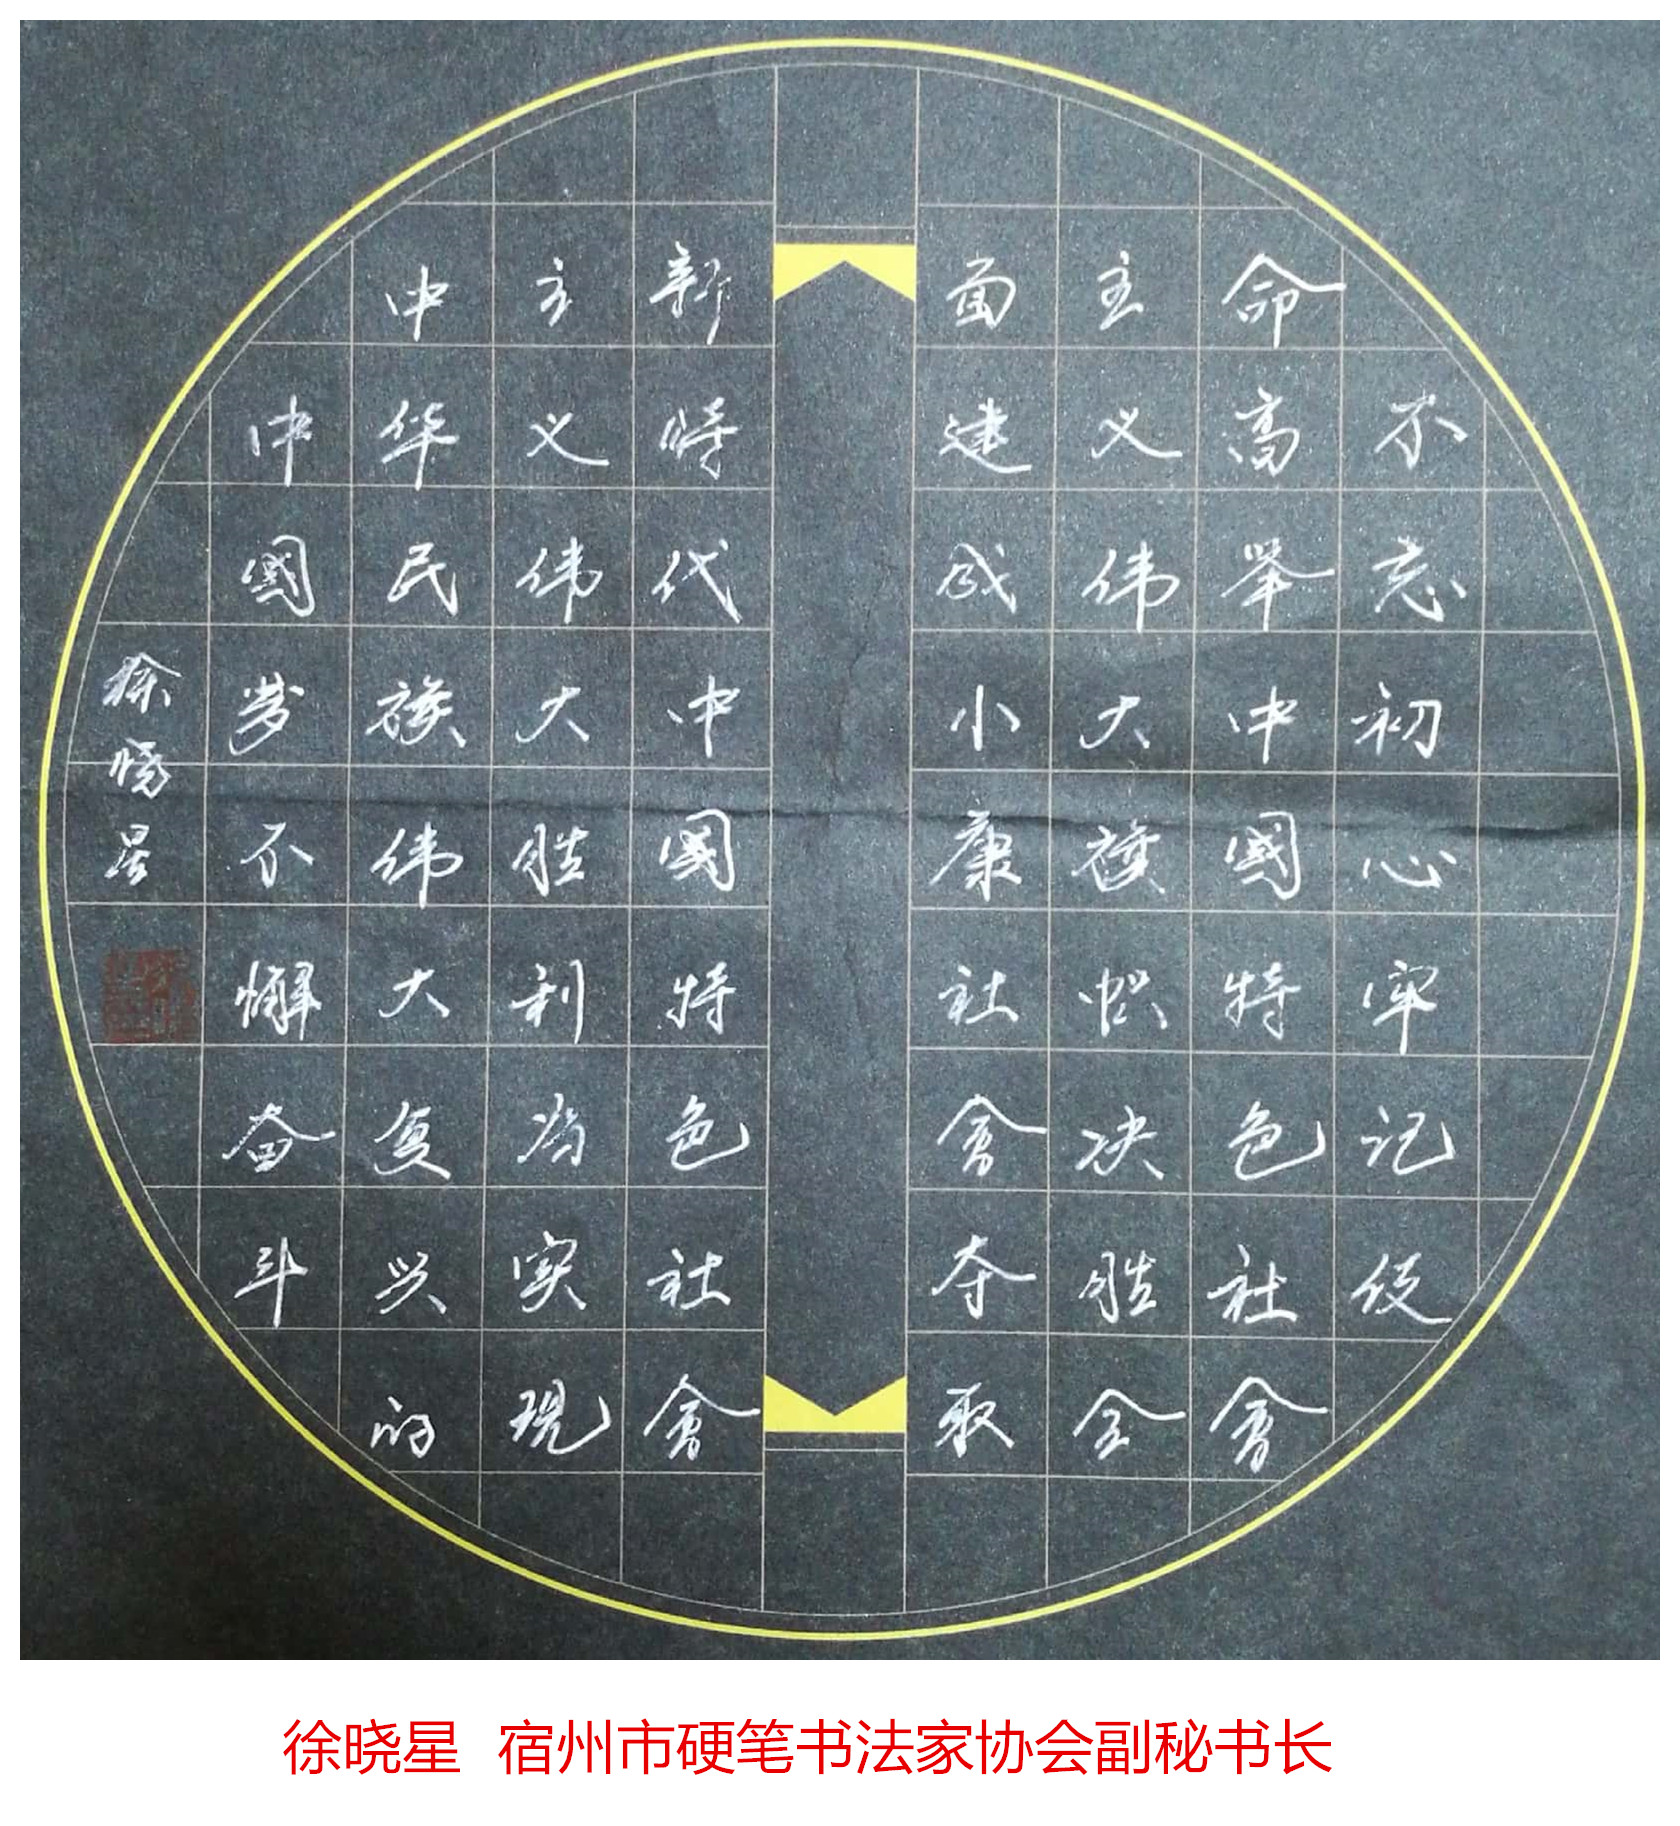 不忘初心牢记使
命高举中國特色社會
主义伟大旗帜决胜全
面建成小康社會夺取
新時代中國特色社會
主义伟大胜利为实现
中华民族伟大复兴的
中國梦不懈奋斗
徐晓星
徐晓星 宿州市硬笔书法家协会副秘书长